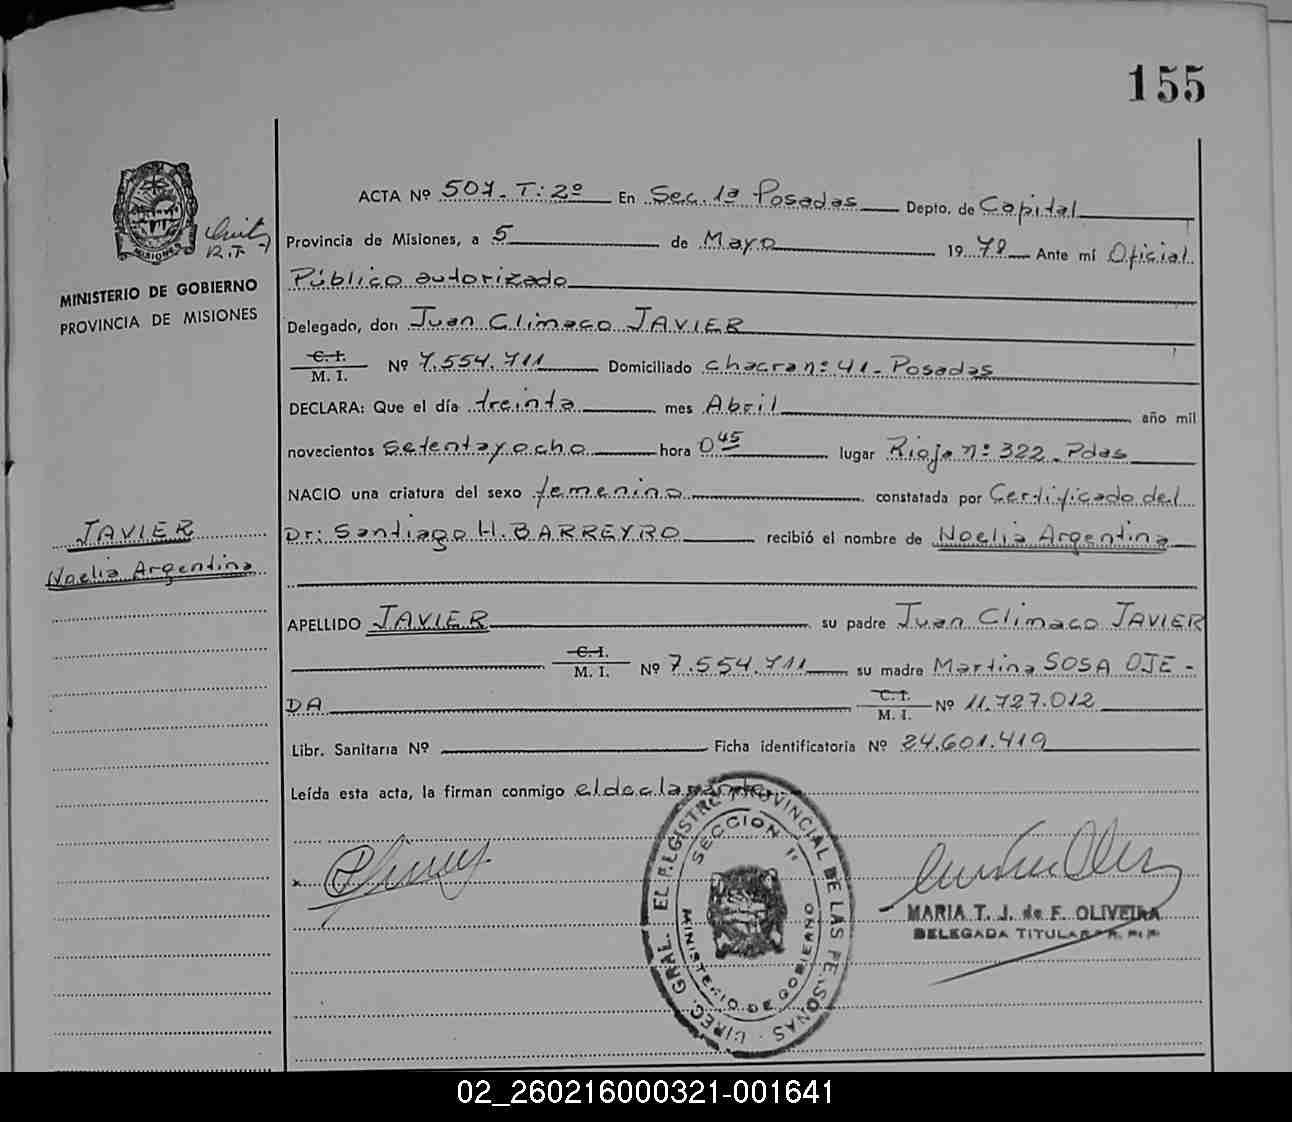 155
ACTA Nº 507. T: 2º En Sec. 1ª Posadas Depto. de Capital
Provincia de Misiones, a 5 de Mayo 19 78 Ante mí Oficial
Público autorizado
MINISTERIO DE GOBIERNO
PROVINCIA DE MISIONES
Delegado, don Juan Climaco JAVIER
C. I.
M. I. Nº 7.554.711 Domiciliado chacra nº 41 - Posadas
DECLARA: Que el día treinta mes Abril año mil
novecientos setenta y ocho hora 0 45 lugar Rioja nº 322 - Pdas
NACIO una criatura del sexo femenino constatada por Certificado del
Dr: Santiago H. BARREYRO recibió el nombre de Noelia Argentina
JAVIER
Noelia Argentina
APELLIDO JAVIER su padre Juan Climaco JAVIER
C. I.
M. I. Nº 7.554.711 su madre Martina SOSA OJE -
DA C. I.
M. I. Nº 11.727.012
Libr. Sanitaria Nº Ficha identificatoria Nº 24.601.419
Leída esta acta, la firman conmigo el declarante
DIREC. GRAL. EL REGISTRO PROVINCIAL DE LAS PERSONAS
SECCION 1ª
MINISTERIO DE GOBIERNO
MARIA T. J. de F. OLIVEIRA
DELEGADA TITULAR
02_260216000321-001641